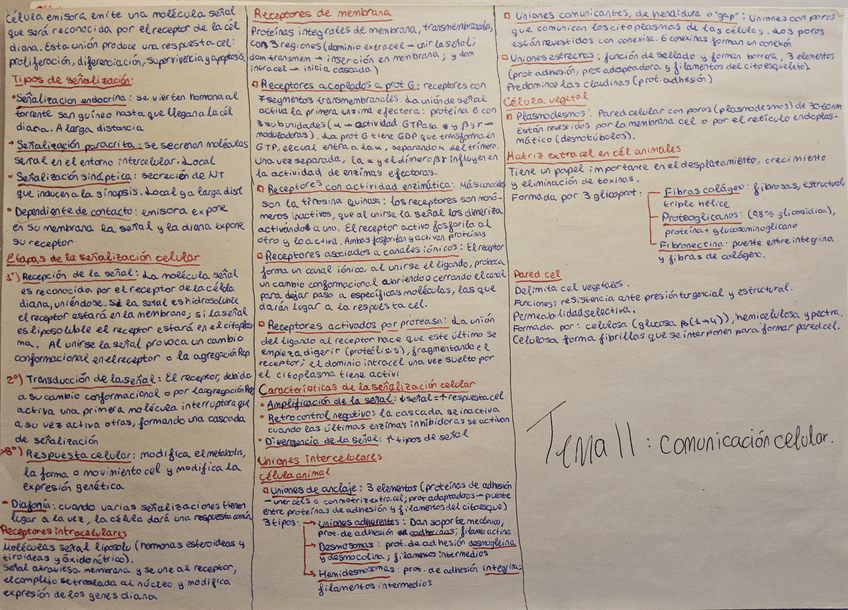 Célula emisora emite una molécula señal
que será reconocida por el receptor de la cél
diana. Esta unión produce una respuesta cel:
proliferación, diferenciación, supervivencia y apoptosis
Tipos de señalización:
• Señalización endocrina: se vierten hormona al
torrente sanguíneo hasta que llegan a la cél
diana. A larga distancia
• Señalización paracrita: se secretan moléculas
señal en el entorno intercelular. Local
• Señalización sináptica: secreción de NT
que inducen a la sinapsis. Local y a larga dist
• Dependiente de contacto: emisora expone
en su membrana la señal y la diana expone
su receptor
Etapas de la señalización celular
1º) Recepción de la señal: La molécula señal
es reconocida por el receptor de la célula
diana, uniéndose. Si la señal es hidrosoluble
el receptor estará en la membrana; si la señal
es liposoluble el receptor estará en el citoplas-
ma. Al unirse la señal provoca un cambio
conformacional en el receptor o la agregación Rep
2º) Transducción de la señal: El receptor, debido
a su cambio conformacional o por la agregación Rep
activa una primera molécula interruptora que
a su vez activa otras, formando una cascada
de señalización
3º) Respuesta celular: modifica el metabolis,
la forma o movimiento cel y modifica la
expresión genética
- Diafonía: cuando varias señalizaciones tienen
lugar a la vez, la célula dará una respuesta común
Receptores intracelulares
Moléculas señal liposolu (hormonas esteroideas y
tiroideas y óxido nítrico).
Señal atraviesa membrana y se une al receptor,
el complejo se traslada al núcleo y modifica
expresión de los genes diana
Receptores de membrana
Proteínas integrales de membrana, transmembranales,
con 3 regiones (dominio extracel → unir la señal;
dom transmem → inserción en membrana; y dom
intracel → inicia cascada)
Receptores acoplados a prot G: receptores con
7 segmentos transmembranales. La unión de señal
activa la primera enzima efectora: proteína G con
3 subunidades (α → actividad GTPasa y β y γ →
moduladoras). La prot G tiene GDP que transforma en
GTP, el cual entra a la α, separándola del trímero.
Una vez separada, la α y el dímero βγ influyen en
la actividad de enzimas efectoras.
Receptores con actividad enzimática: Más conocidos
son la tirosina quinasa: los receptores son monó-
meros inactivos, que al unirse la señal los dimeriza
activándo a uno. El receptor activo fosforila al
otro y lo activa. Ambos fosforilan y activan proteínas
Receptores asociados a canales iónicos: El receptor
forma un canal iónico. al unirse el ligando, provoca
un cambio conformacional abriendo o cerrando el canal
para dejar paso a específicas moléculas, las que
darán lugar a la respuesta cel.
Receptores activados por proteasa: La unión
del ligando al receptor hace que este último se
empieza digerir (proteólisis), fragmentando el
receptor; el dominio intracel una vez suelto por
el citoplasma tiene activi
Características de la señalización celular
• Amplificación de la señal: ↓ señal = ↑ respuesta cel
• Retrocontrol negativo: la cascada se inactiva
cuando las últimas enzimas inhibidoras se activan
• Divergencia de la señal: ↑ tipos de señal
Uniones intercelulares
Célula animal
Uniones de anclaje: 3 elementos (proteínas de adhesión
→ une céls o con matriz extracel; prot adaptadora → puente
entre proteínas de adhesión y filamentos del citoesque)
3 tipos: → Uniones adherentes: Dan soporte mecánico,
prot. de adhesión cadherinas; filam actina
→ Desmosomas: prot. de adhesión desmogleína
y desmocolina; filamentos intermedios
→ Hemidesmosomas: prot. de adhesión integrina;
filamentos intermedios
Uniones comunicantes, de hendidura o "gap": Uniones con poros
que comunican los citoplasmas de las células. Los poros
están revestidos con conexina. 6 conexinas forman un conexón
Uniones estrechas: función de sellado y forman barrera, 3 elementos
(prot adhesión, prot adaptadora y filamentos del citoesqueleto).
Predominan las claudinas (prot. adhesión)
Célula vegetal
• Plasmodesmos: Pared celular con poros (plasmodesmos) de 30-60nm
Están revestidos por la membrana cel o por el retículo endoplas-
mático (desmotúbulos).
Matriz extracel en cél animales
Tiene un papel importante en el desplazamiento, crecimiento
y eliminación de toxinas.
Formada por 3 glicoprot:
Fibras colágeno: fibrosas, estructural
triple hélice
Proteoglicanos: (98% glicosidión),
proteína + glucosaminoglicano
Fibronectina: puente entre integrina
y fibras de colágeno.
Pared cel
Delimita cel vegetales.
Funciones: resistencia ante presión turgencial y estructural.
Permeabilidad selectiva.
Formada por: celulosa (glucosa β(1→4)), hemicelulosa y pectina.
Celulosa forma fibrillas que se interponen para formar pared cel.
Tema 11: comunicación celular.